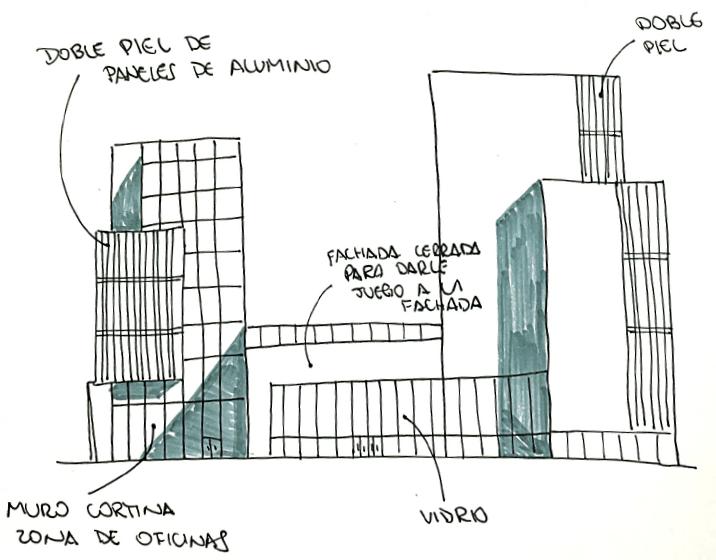 DOBLE PIEL DE
PANELES DE ALUMINIO
DOBLE
PIEL
FACHADA CERRADA
PARA DARLE
JUEGO A LA
FACHADA
MURO CORTINA
ZONA DE OFICINAS
VIDRIO